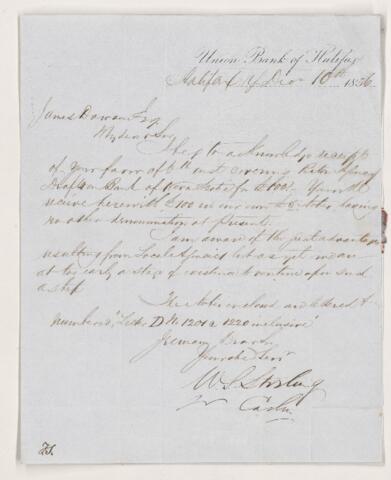 Union Bank of Halifax
Halifax Dec 10th 1856
James Dawson Esq
My dear Sir
I beg to acknowledge receipt
of your favor of 6th inst covering
Draft on Bank of Nova Scotia for £100. You will
receive herewith £100 in our own £5 Notes having
no other denomination at present.
I am aware of the great advantages
resulting from Local Agencies but as yet we are
at too early a stage of existence to venture upon such
a step
The Notes enclosed are lettered &
numbered, "Letter D No 1201 a 1220 inclusive"
I remain Dear Sir
Your obt Servt
W. S. Stirling
Cashr